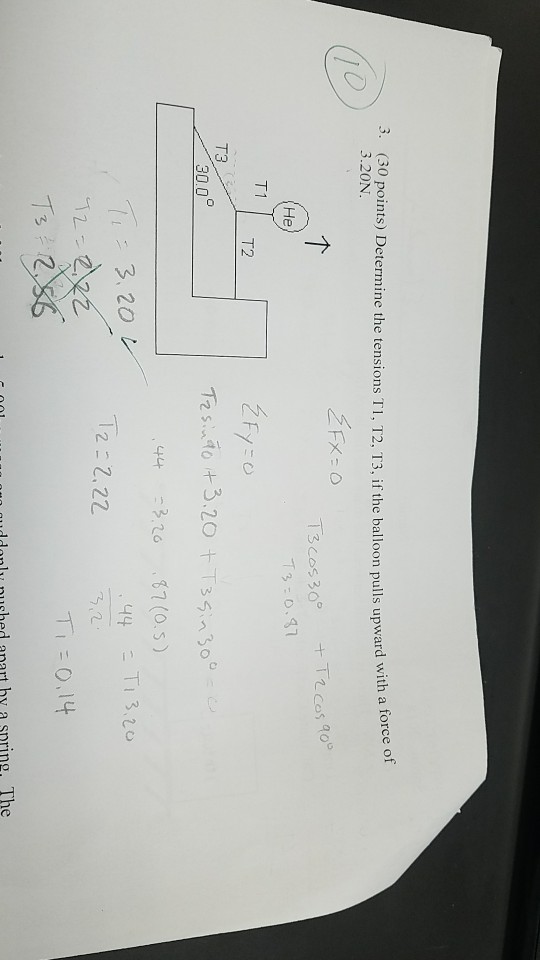 10
3. (30 points) Determine the tensions T1, T2, T3, if the balloon pulls upward with a force of
3.20N.
He
T1
T2
T3
30.0°
ΣFx=0
T3cos30° + T2cos90°
T3=0.87
ΣFy=0
T2sin90 + 3.20 + T3sin30° =
.44 = 3.20 .87(0.5)
.44 = T1 3.20
3.2
T1 = 3.20
T2 = 2.22
T2 = 2.22
T3 = 2.56
T1 = 0.14
suddenly pushed apart by a spring. The